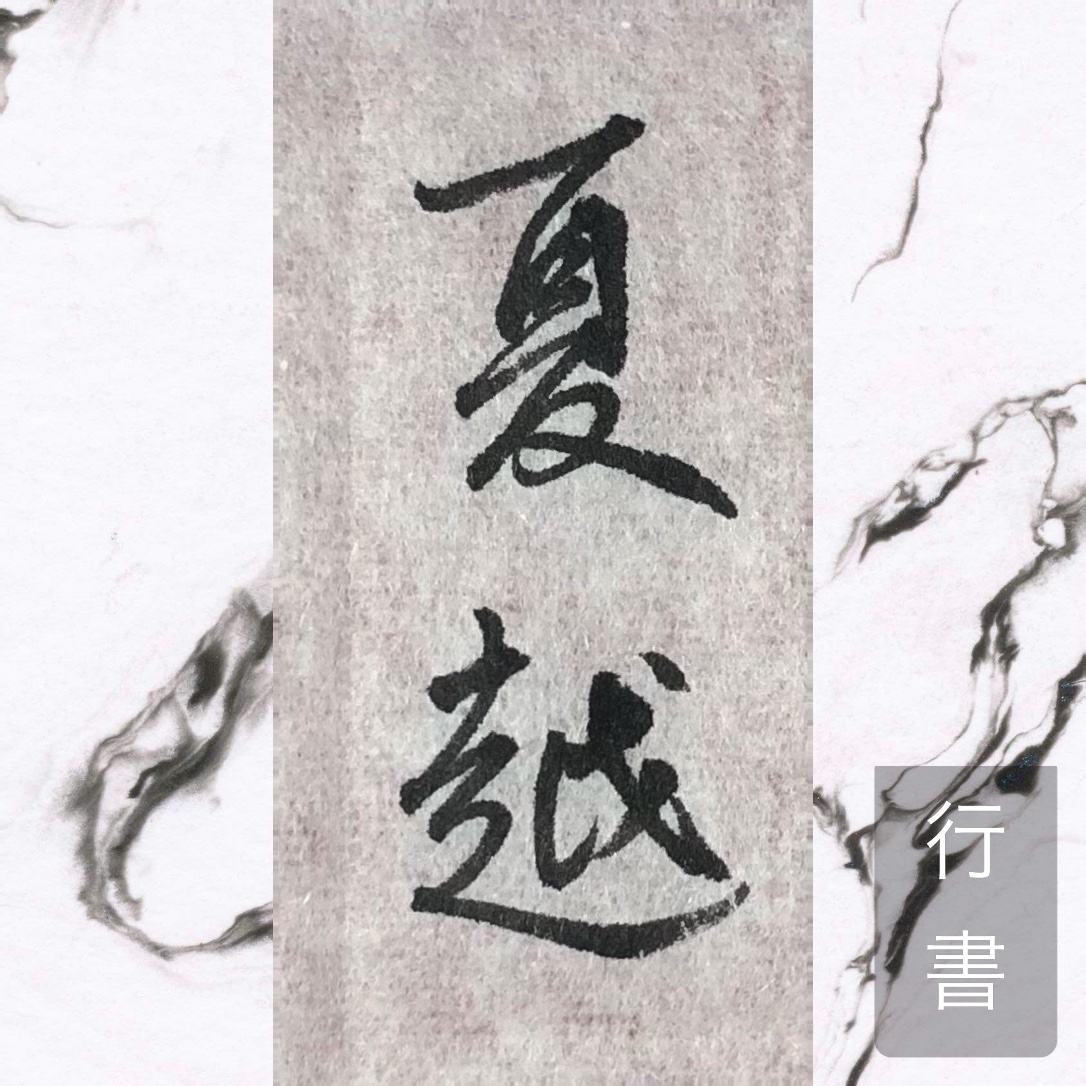 夏越
行書